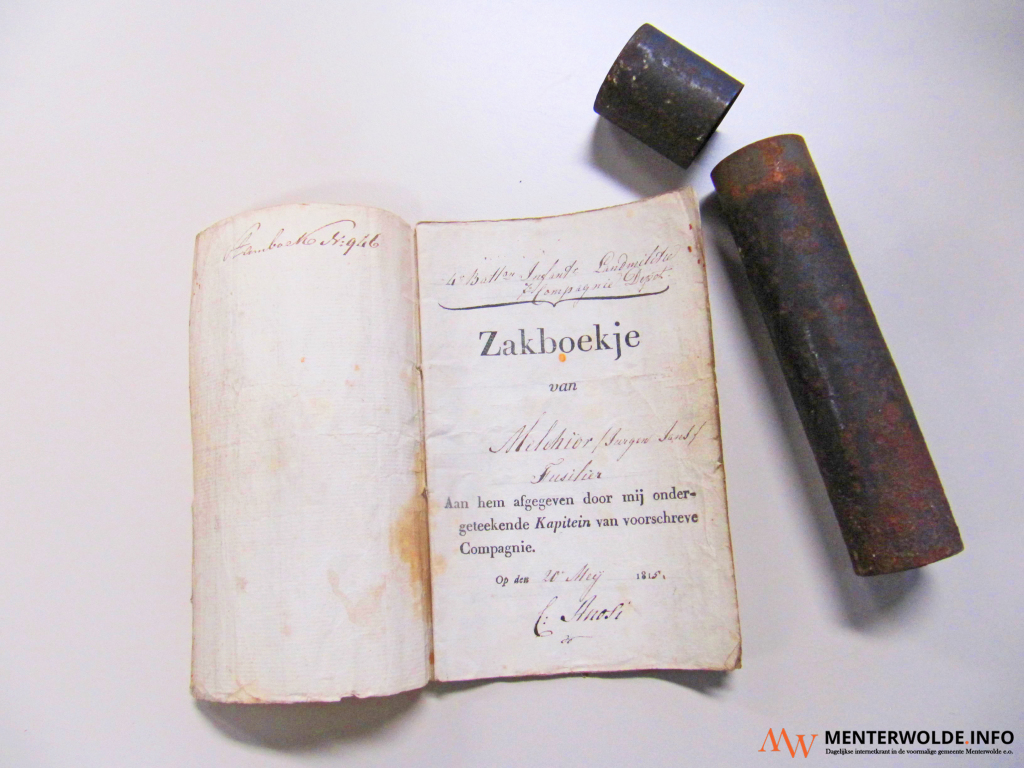 Stamboek No: 946
4e Batton Infante Landmilitie
7e Compagnie Depot
Zakboekje
van
Melchior Jurgen
Fuselier
Aan hem afgegeven door mij onder-
geteekende Kapitein van voorschreve
Compagnie.
Op den 20e Meij 1815.
C:
MW MENTERWOLDE.INFO
Dagelijkse internetkrant in de voormalige gemeente Menterwolde e.o.